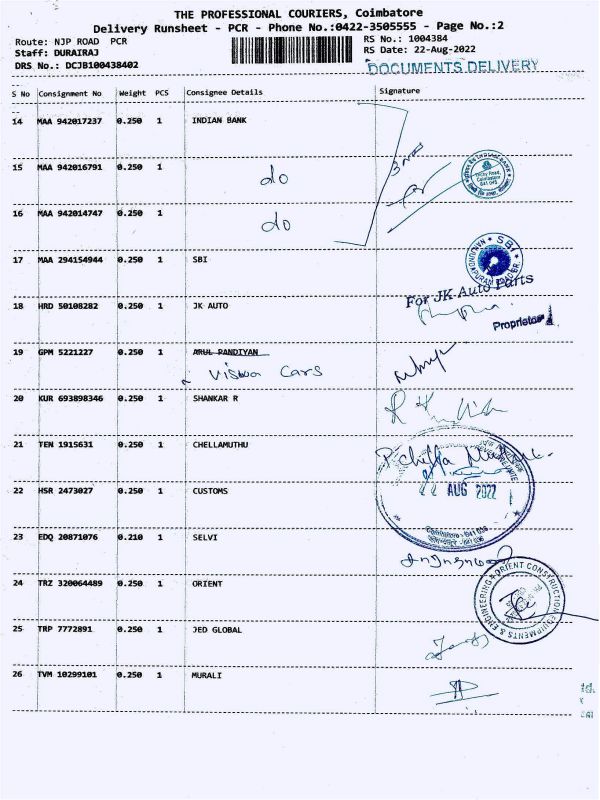 THE PROFESSIONAL COURIERS, Coimbatore
Delivery Runsheet - PCR - Phone No.:0422-3505555 - Page No.:2
Route: NJP ROAD PCR
RS No.: 1004384
Staff: DURAIRAJ
RS Date: 22-Aug-2022
DRS No.: DCJB100438402
DOCUMENTS DELIVERY
S No Consignment No Weight PCS Consignee Details Signature
14 MAA 942017237 0.250 1 INDIAN BANK
15 MAA 942016791 0.250 1 do
16 MAA 942014747 0.250 1 do
17 MAA 294154944 0.250 1 SBI
For JK Auto Parts
18 HRD 50108282 0.250 1 JK AUTO
Proprietor
19 GPM 5221227 0.250 1 ARUL PANDIYAN
Viswa Cars
20 KUR 693898346 0.250 1 SHANKAR R
21 TEN 1915631 0.250 1 CHELLAMUTHU
22 HSR 2473027 0.250 1 CUSTOMS
22 AUG 2022
23 EDQ 20871076 0.210 1 SELVI
24 TRZ 320064489 0.250 1 ORIENT
ORIENT CONSTRUCTION EQUIPMENTS & ENGINEERING
25 TRP 7772891 0.250 1 JED GLOBAL
26 TVM 10299101 0.250 1 MURALI